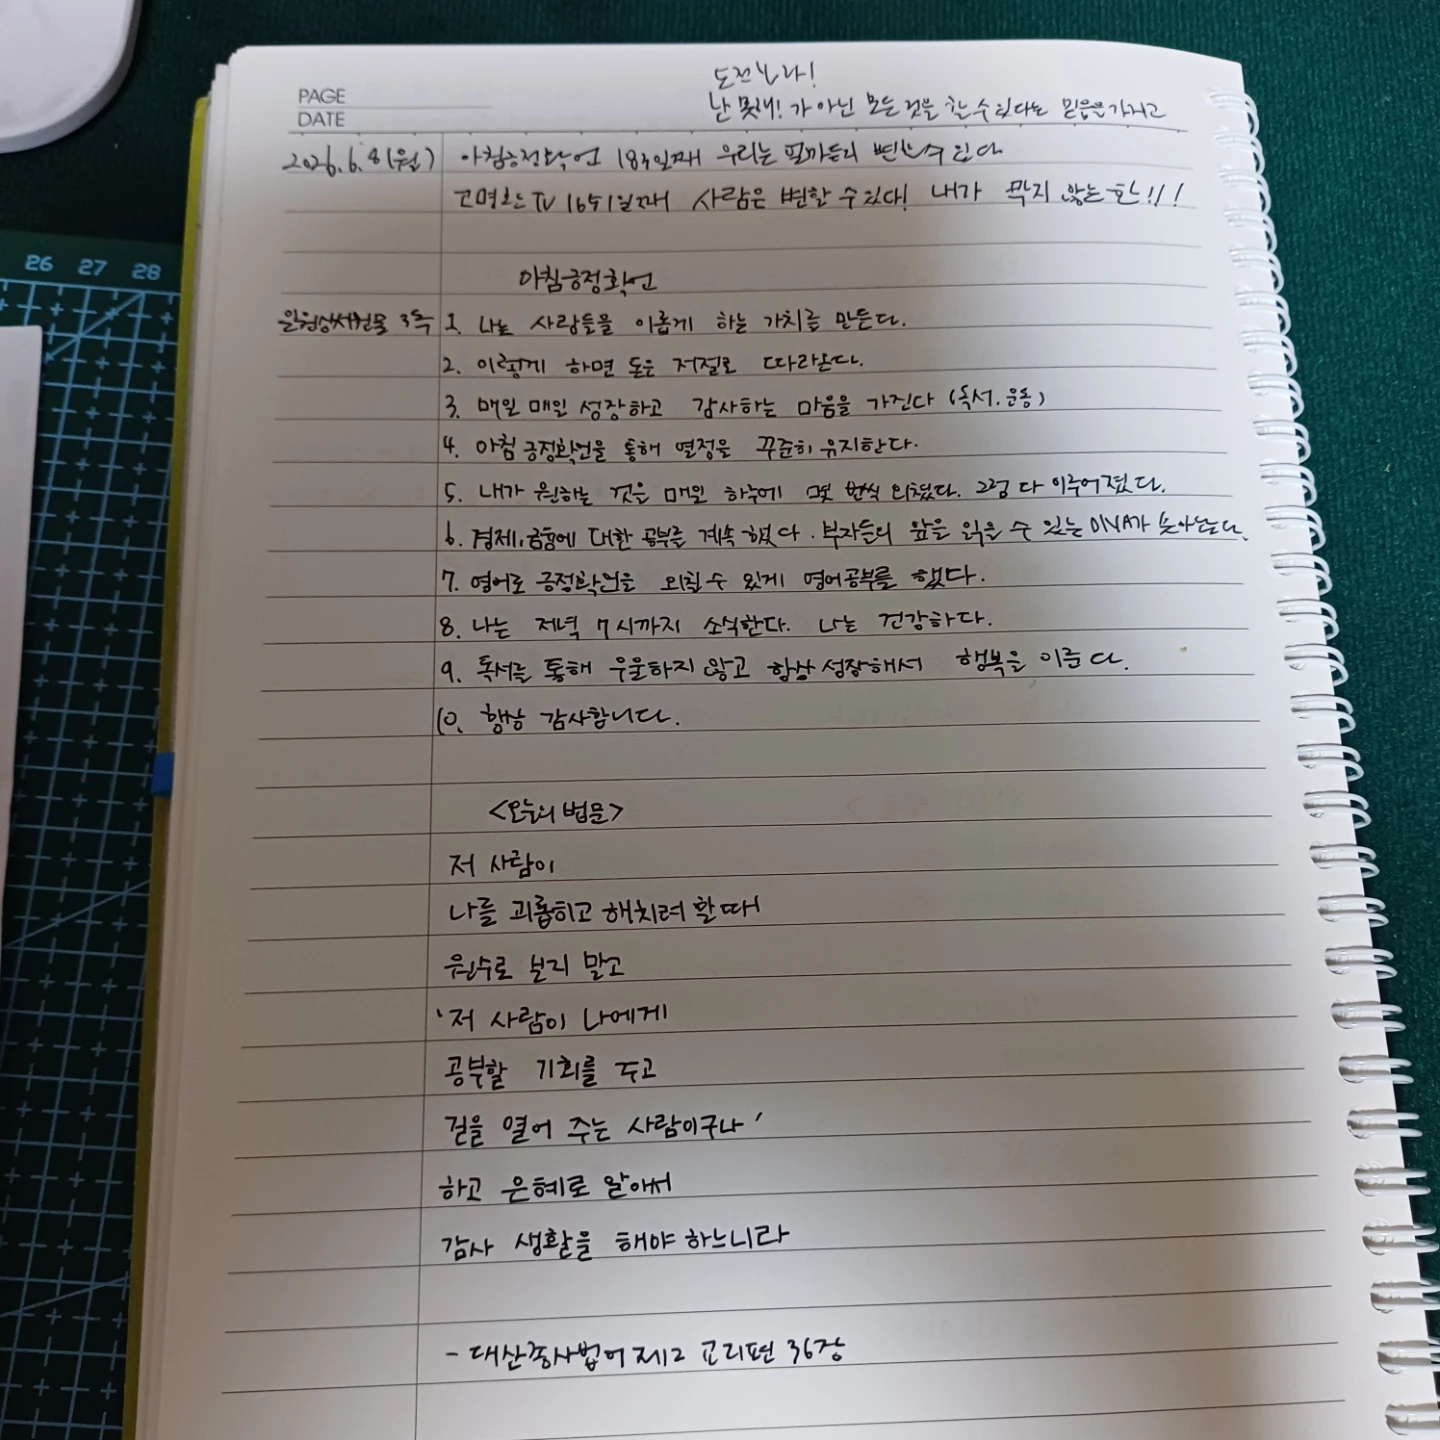 도전하라!
난 못해! 가 아닌 모든 것을 할 수 있다는 믿음을 가지고
PAGE
DATE
2026.6.8(월) 아침긍정확언 183일째 우리는 언제든지 변할 수 있다
고명환TV 1651일째 사람은 변할 수 있다! 내가 막지 않는 한!!!
아침긍정확언
일원상서원문 3독 1. 나는 사람들을 이롭게 하는 가치를 만든다.
2. 이렇게 하면 돈은 저절로 따라온다.
3. 매일 매일 성장하고 감사하는 마음을 가진다 (독서. 운동)
4. 아침 긍정확언을 통해 열정을 꾸준히 유지한다.
5. 내가 원하는 것을 매일 하루에 몇 번씩 외쳤다. 그럼 다 이루어졌다.
6. 경제, 금융에 대한 공부를 계속 했다. 부자들의 앞을 읽을 수 있는 DNA가 쏟아난다.
7. 영어로 긍정확언을 외칠 수 있게 영어공부를 했다.
8. 나는 저녁 7시까지 소식한다. 나는 건강하다.
9. 독서를 통해 우울하지 않고 항상 성장해서 행복을 이룬다.
10. 항상 감사합니다.
<오늘의 법문>
저 사람이
나를 괴롭히고 해치려 할 때
원수로 보지 말고
'저 사람이 나에게
공부할 기회를 주고
길을 열어 주는 사람이구나'
하고 은혜로 알아서
감사 생활을 해야 하느니라
- 대산종사법어 제12 교리편 36장
26 27 28